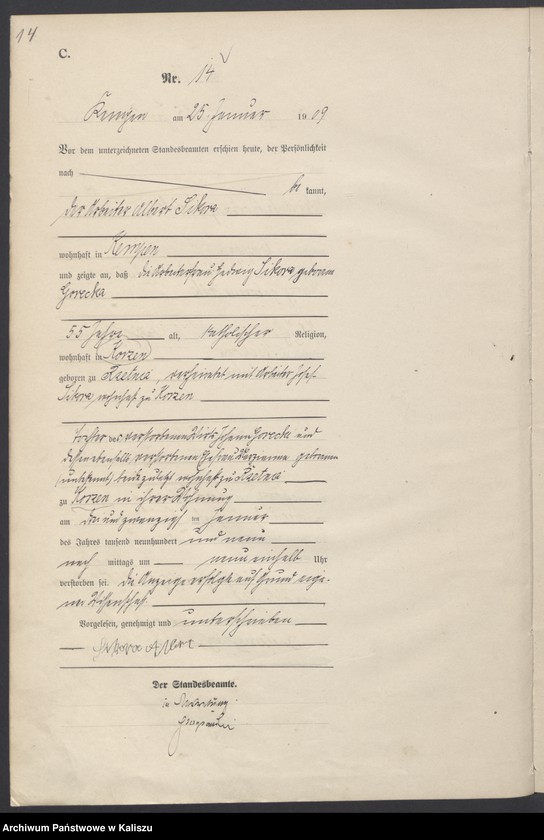 14
C.
Nr. 14
Kempen am 25. Januar 1909
Vor dem unterzeichneten Standesbeamten erschien heute, der Persönlichkeit
nach
bekannt,
der Arbeiter Albert Sikora
wohnhaft in Kempen
und zeigte an, daß die Arbeiterfrau Hedwig Sikora, geborene
Gorecka
55 Jahre alt, katholischer Religion,
wohnhaft in Korzen
geboren zu, verheiratet mit Arbeiter Josef
Sikora, wohnhaft zu Korzen
Tochter des verstorbenen Wirts Johann Gorecka und
dessen ebenfalls verstorbenen Ehefrau Marianna geborenen
(unbekannt), beide zuletzt wohnhaft zu
zu Korzen in ihrer Wohnung
am drei und zwanzigsten Januar
des Jahres tausend neunhundert und neun
nach mittags um neun einhalb Uhr
verstorben sei. Die Anzeige erfolgt auf Grund eige-
ner Wissenschaft.
Vorgelesen, genehmigt und unterschrieben
Sikora Albert
Der Standesbeamte.
in Vertretung
Archiwum Państwowe w Kaliszu